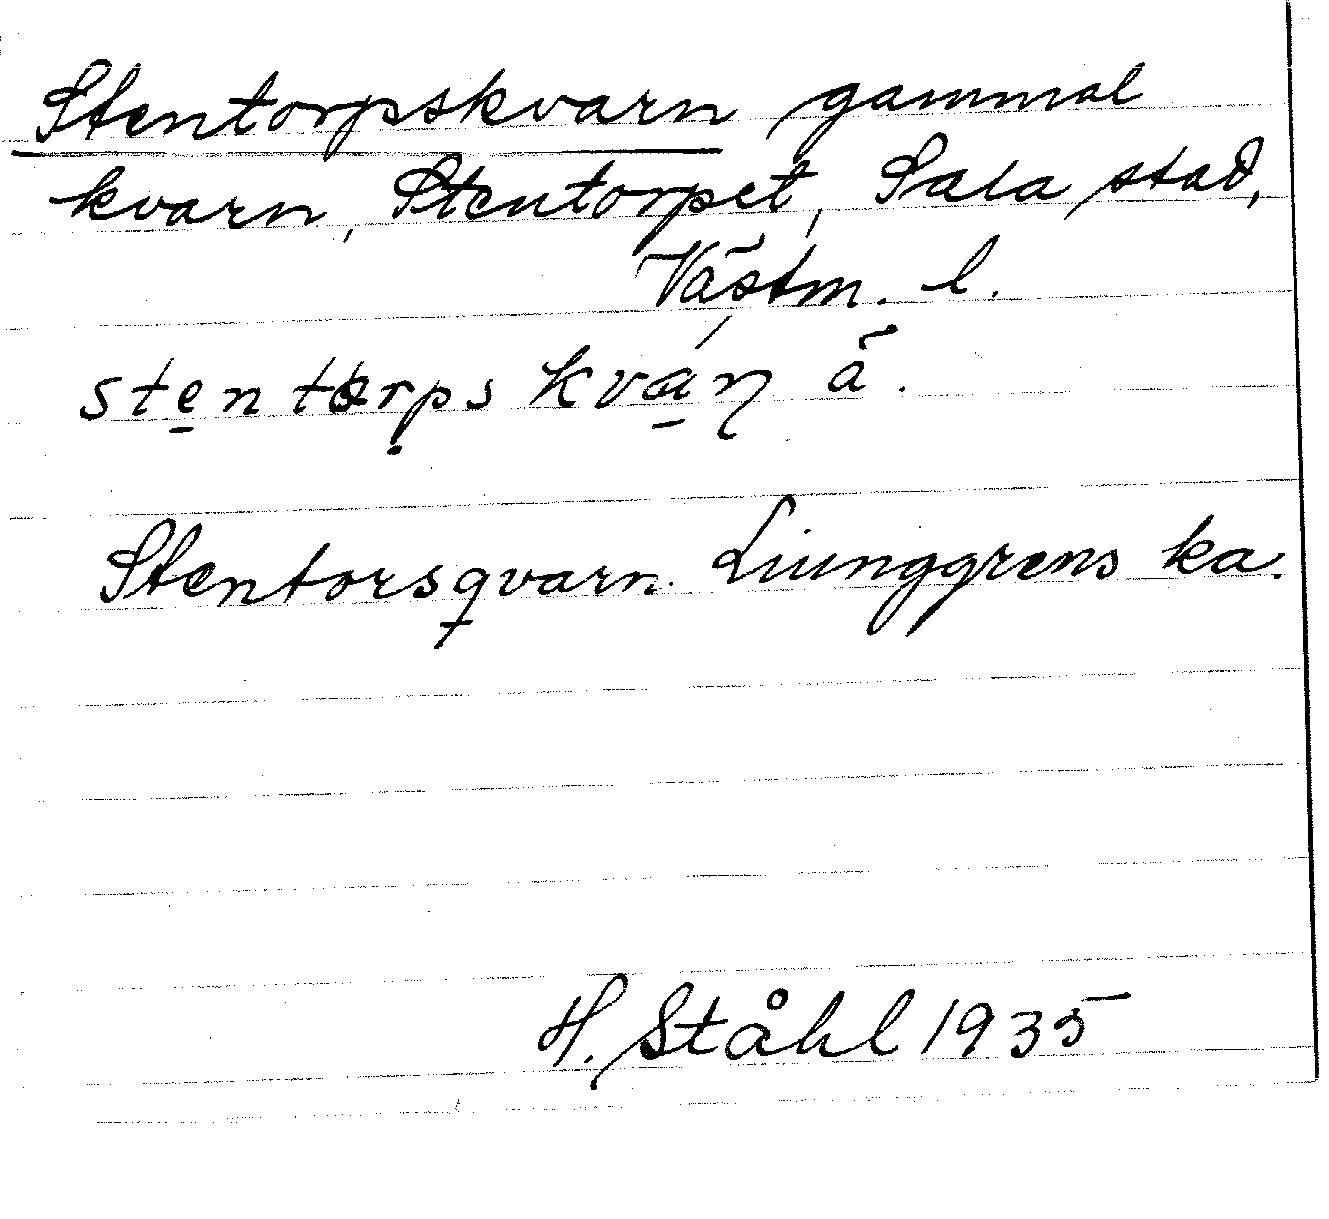 Stentorpskvarn gammal
kvarn, Stentorpet, Sala stad,
Västm. l.
stentorpskván ā.
Stentorsqvarn. Liunggrens ka.
H. Ståhl 1935